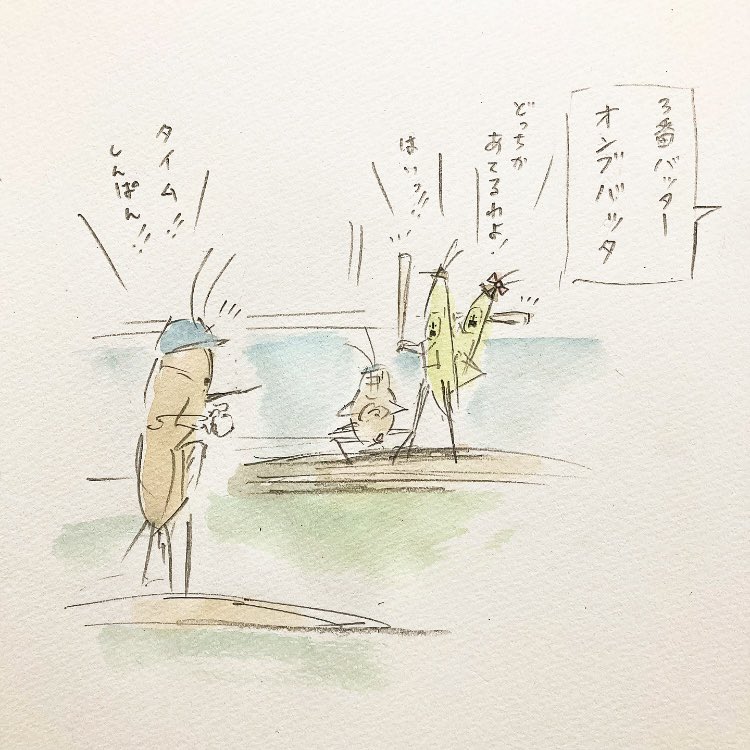 3番バッター
オンブバッタ
どっちか
あてるわよ!
はいっ!!
タイム!!
しんぱん!!